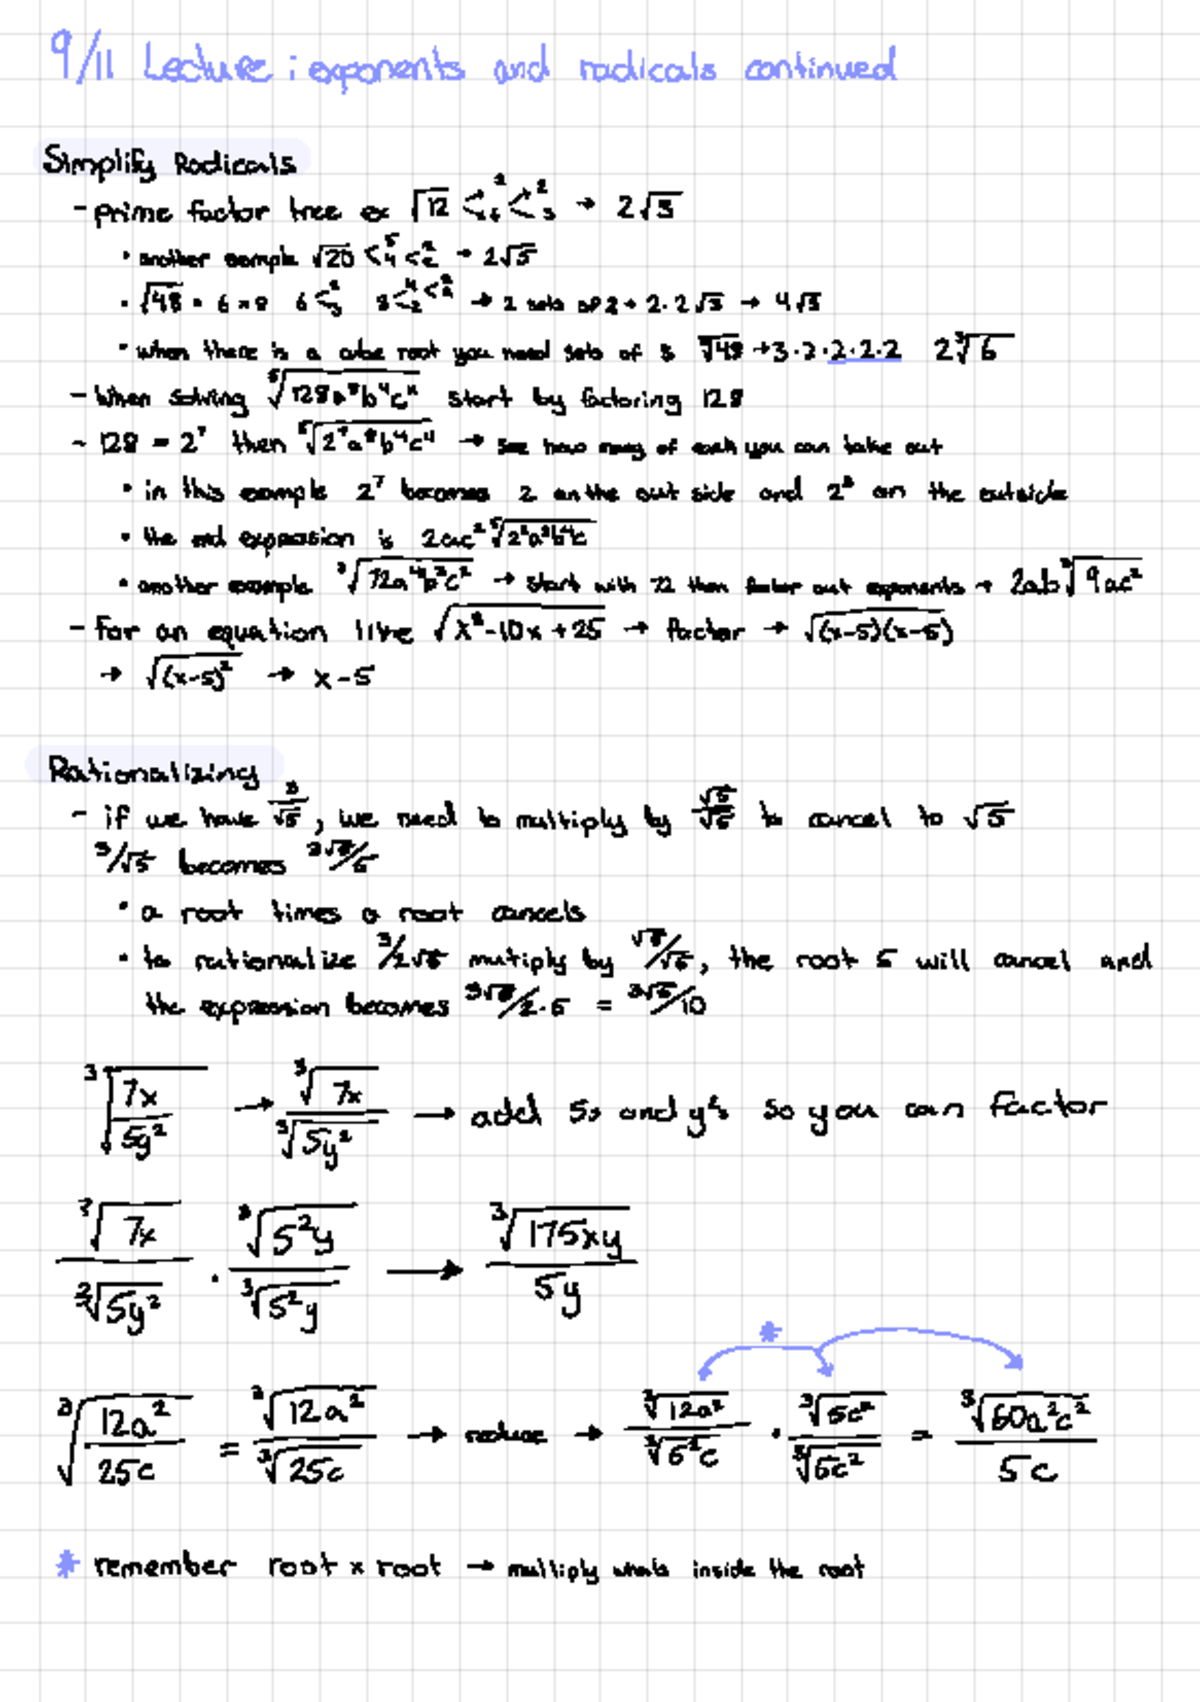 9/11 Lecture : exponents and radicals continued
Simplify Radicals
- prime factor tree ex √12 < 2 4 < 2 3 → 2√3
• another example √20 < 5 4 < 2 2 → 2√5
• √48 = 6 × 8 6 < 2 3 8 < 4 2 < 2 2 → 2 sets of 2 → 2·2√3 → 4√3
• when there is a cube root you need sets of 3 ∛48 → 3·2·2·2·2 2∛6
- When solving ⁵√128a⁸b⁴c⁴ start by factoring 128
- 128 = 2⁷ then ⁵√2⁷a⁸b⁴c⁴ → see how many of each you can take out
• in this example 2⁷ becomes 2 on the out side and 2² on the outside
• the end expression is 2ac² ⁵√2²a³b⁴c
• another example ³√72a⁴b³c² → start with 72 then factor out exponents → 2ab ³√9ac²
- For an equation like √x²-10x+25 → factor → √(x-5)(x-5)
→ √(x-5)² → x-5
Rationalizing
- if we have 3/√5, we need to multiply by √5/√5 to cancel to √5
3/√5 becomes 3√5/5
• a root times a root cancels
• to rationalize 3/2√5 multiply by √5/√5, the root 5 will cancel and
the expression becomes 3√5/2·5 = 3√5/10
³√7x/5y² → ³√7x/³√5y² → add 5s and y's so you can factor
³√7x/³√5y² · ³√5²y/³√5²y → ³√175xy/5y
*
³√12a²/25c = ³√12a²/³√25c → reduce → ³√12a²/³√5²c · ³√5c²/³√5c² = ³√60a²c²/5c
* remember root × root → multiply whats inside the root